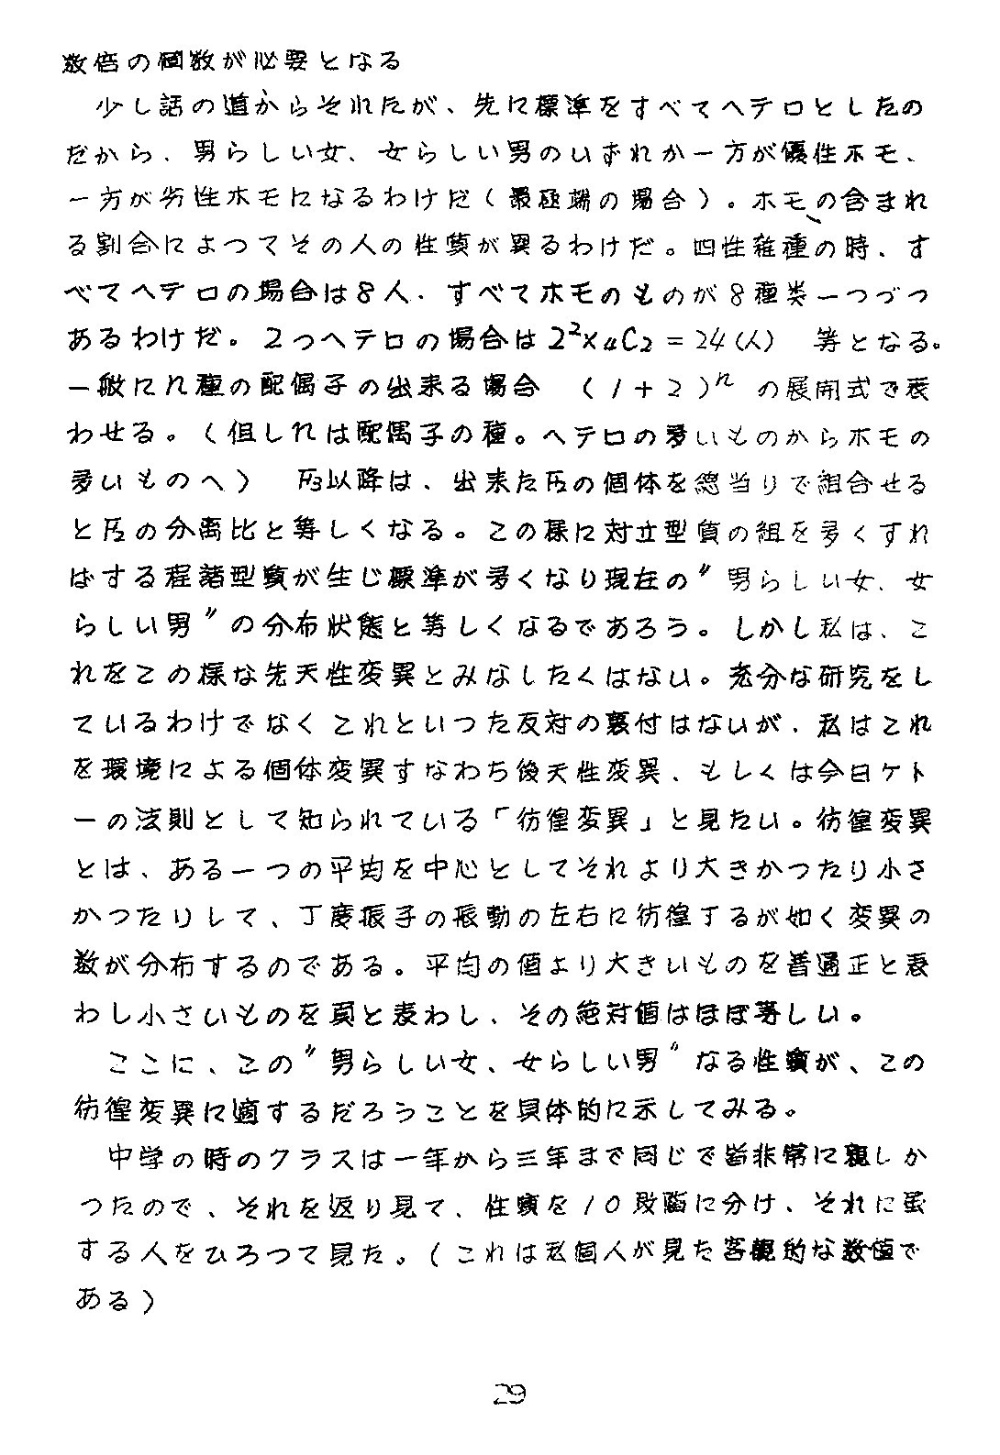 数倍の個数が必要となる
　少し話の道からそれたが、先に標準をすべてヘテロとしたの
だから、男らしい女、女らしい男のいずれか一方が優性ホモ、
一方が劣性ホモになるわけだ（最極端の場合）。ホモの含まれ
る割合によつてその人の性質が異るわけだ。四性雑種の時、す
べてヘテロの場合は8人、すべてホモのものが8種類一つづつ
あるわけだ。2つヘテロの場合は2²×₄C₂＝24(人)　等となる。
一般にn種の配偶子の出来る場合　（1＋2）ⁿ の展開式で表
わせる。（但しnは配偶子の種。ヘテロの多いものからホモの
多いものへ）　F₃以降は、出来たF₂の個体を総当りで組合せる
とF₂の分離比と等しくなる。この様に対立型質の組を多くすれ
ばする程諸型質が生じ標準が多くなり現在の〃男らしい女、女
らしい男〃の分布状態と等しくなるであろう。しかし私は、こ
れをこの様な先天性変異とみなしたくはない。充分な研究をし
ているわけでなくこれといつた反対の裏付はないが、私はこれ
を環境による個体変異すなわち後天性変異、もしくは今日ケト
ーの法則として知られている「彷徨変異」と見たい。彷徨変異
とは、ある一つの平均を中心としてそれより大きかつたり小さ
かつたりして、丁度振子の振動の左右に彷徨するが如く変異の
数が分布するのである。平均の値より大きいものを普通正と表
わし小さいものを負と表わし、その絶対値はほぼ等しい。
　ここに、この〃男らしい女、女らしい男〃なる性質が、この
彷徨変異に適するだろうことを具体的に示してみる。
　中学の時のクラスは一年から三年まで同じで皆非常に親しか
つたので、それを返り見て、性質を10段階に分け、それに
する人をひろつて見た。（これは私個人が見た客観的な数値で
ある）
29